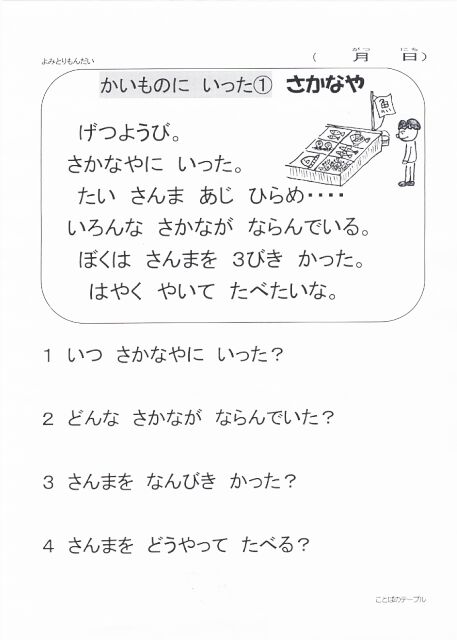 よみとりもんだい
(　月　日)
がつ　にち
かいものに いった① さかなや
げつようび。
さかなやに いった。
たい さんま あじ ひらめ････
いろんな さかなが ならんでいる。
ぼくは さんまを 3びき かった。
はやく やいて たべたいな。
1 いつ さかなやに いった?
2 どんな さかなが ならんでいた?
3 さんまを なんびき かった?
4 さんまを どうやって たべる?
ことばのテーブル